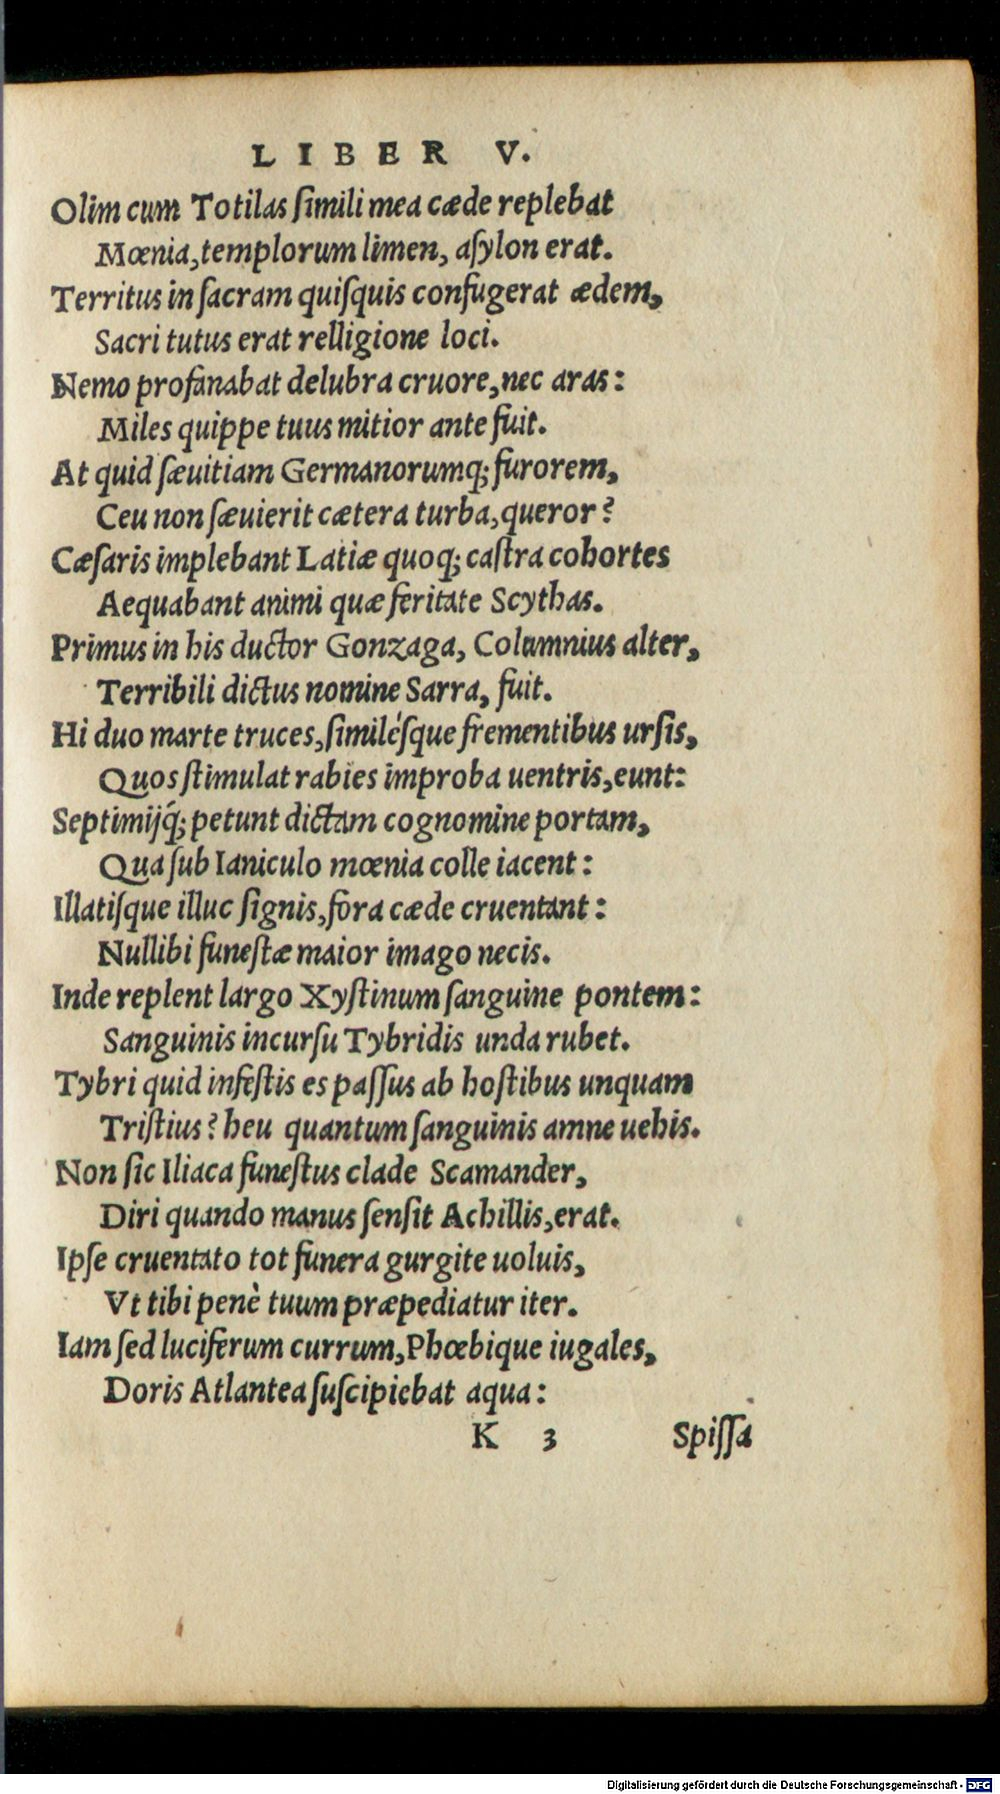 LIBER V.
Olim cum Totilas ſimili mea cæde replebat
Mœnia, templorum limen, aſylon erat.
Territus in ſacram quiſquis confugerat ædem,
Sacri tutus erat relligione loci.
Nemo profanabat delubra cruore, nec aras:
Miles quippe tuus mitior ante fuit.
At quid ſæuitiam Germanorumq; furorem,
Ceu non ſæuierit cætera turba, queror?
Cæſaris implebant Latiæ quoq; caſtra cohortes
Aequabant animi quæ feritate Scythas.
Primus in his ductor Gonzaga, Columnius alter,
Terribili dictus nomine Sarra, fuit.
Hi duo marte truces, ſimiléſque frementibus urſis,
Quos ſtimulat rabies improba uentris, eunt:
Septimijq́; petunt dictam cognomine portam,
Qua ſub Ianiculo mœnia colle iacent:
Illatiſque illuc ſignis, fora cæde cruentant:
Nullibi funeſtæ maior imago necis.
Inde replent largo Xyſtinum ſanguine pontem:
Sanguinis incurſu Tybridis unda rubet.
Tybri quid infeſtis es paſſus ab hoſtibus unquam
Triſtius? heu quantum ſanguinis amne uehis.
Non ſic Iliaca funeſtus clade Scamander,
Diri quando manus ſenſit Achillis, erat.
Ipſe cruentato tot funera gurgite uoluis,
Vt tibi penè tuum præpediatur iter.
Iam ſed luciferum currum, Phœbique iugales,
Doris Atlantea ſuſcipiebat aqua:
K 3 Spiſſa
Digitalisierung gefördert durch die Deutsche Forschungsgemeinschaft - DFG